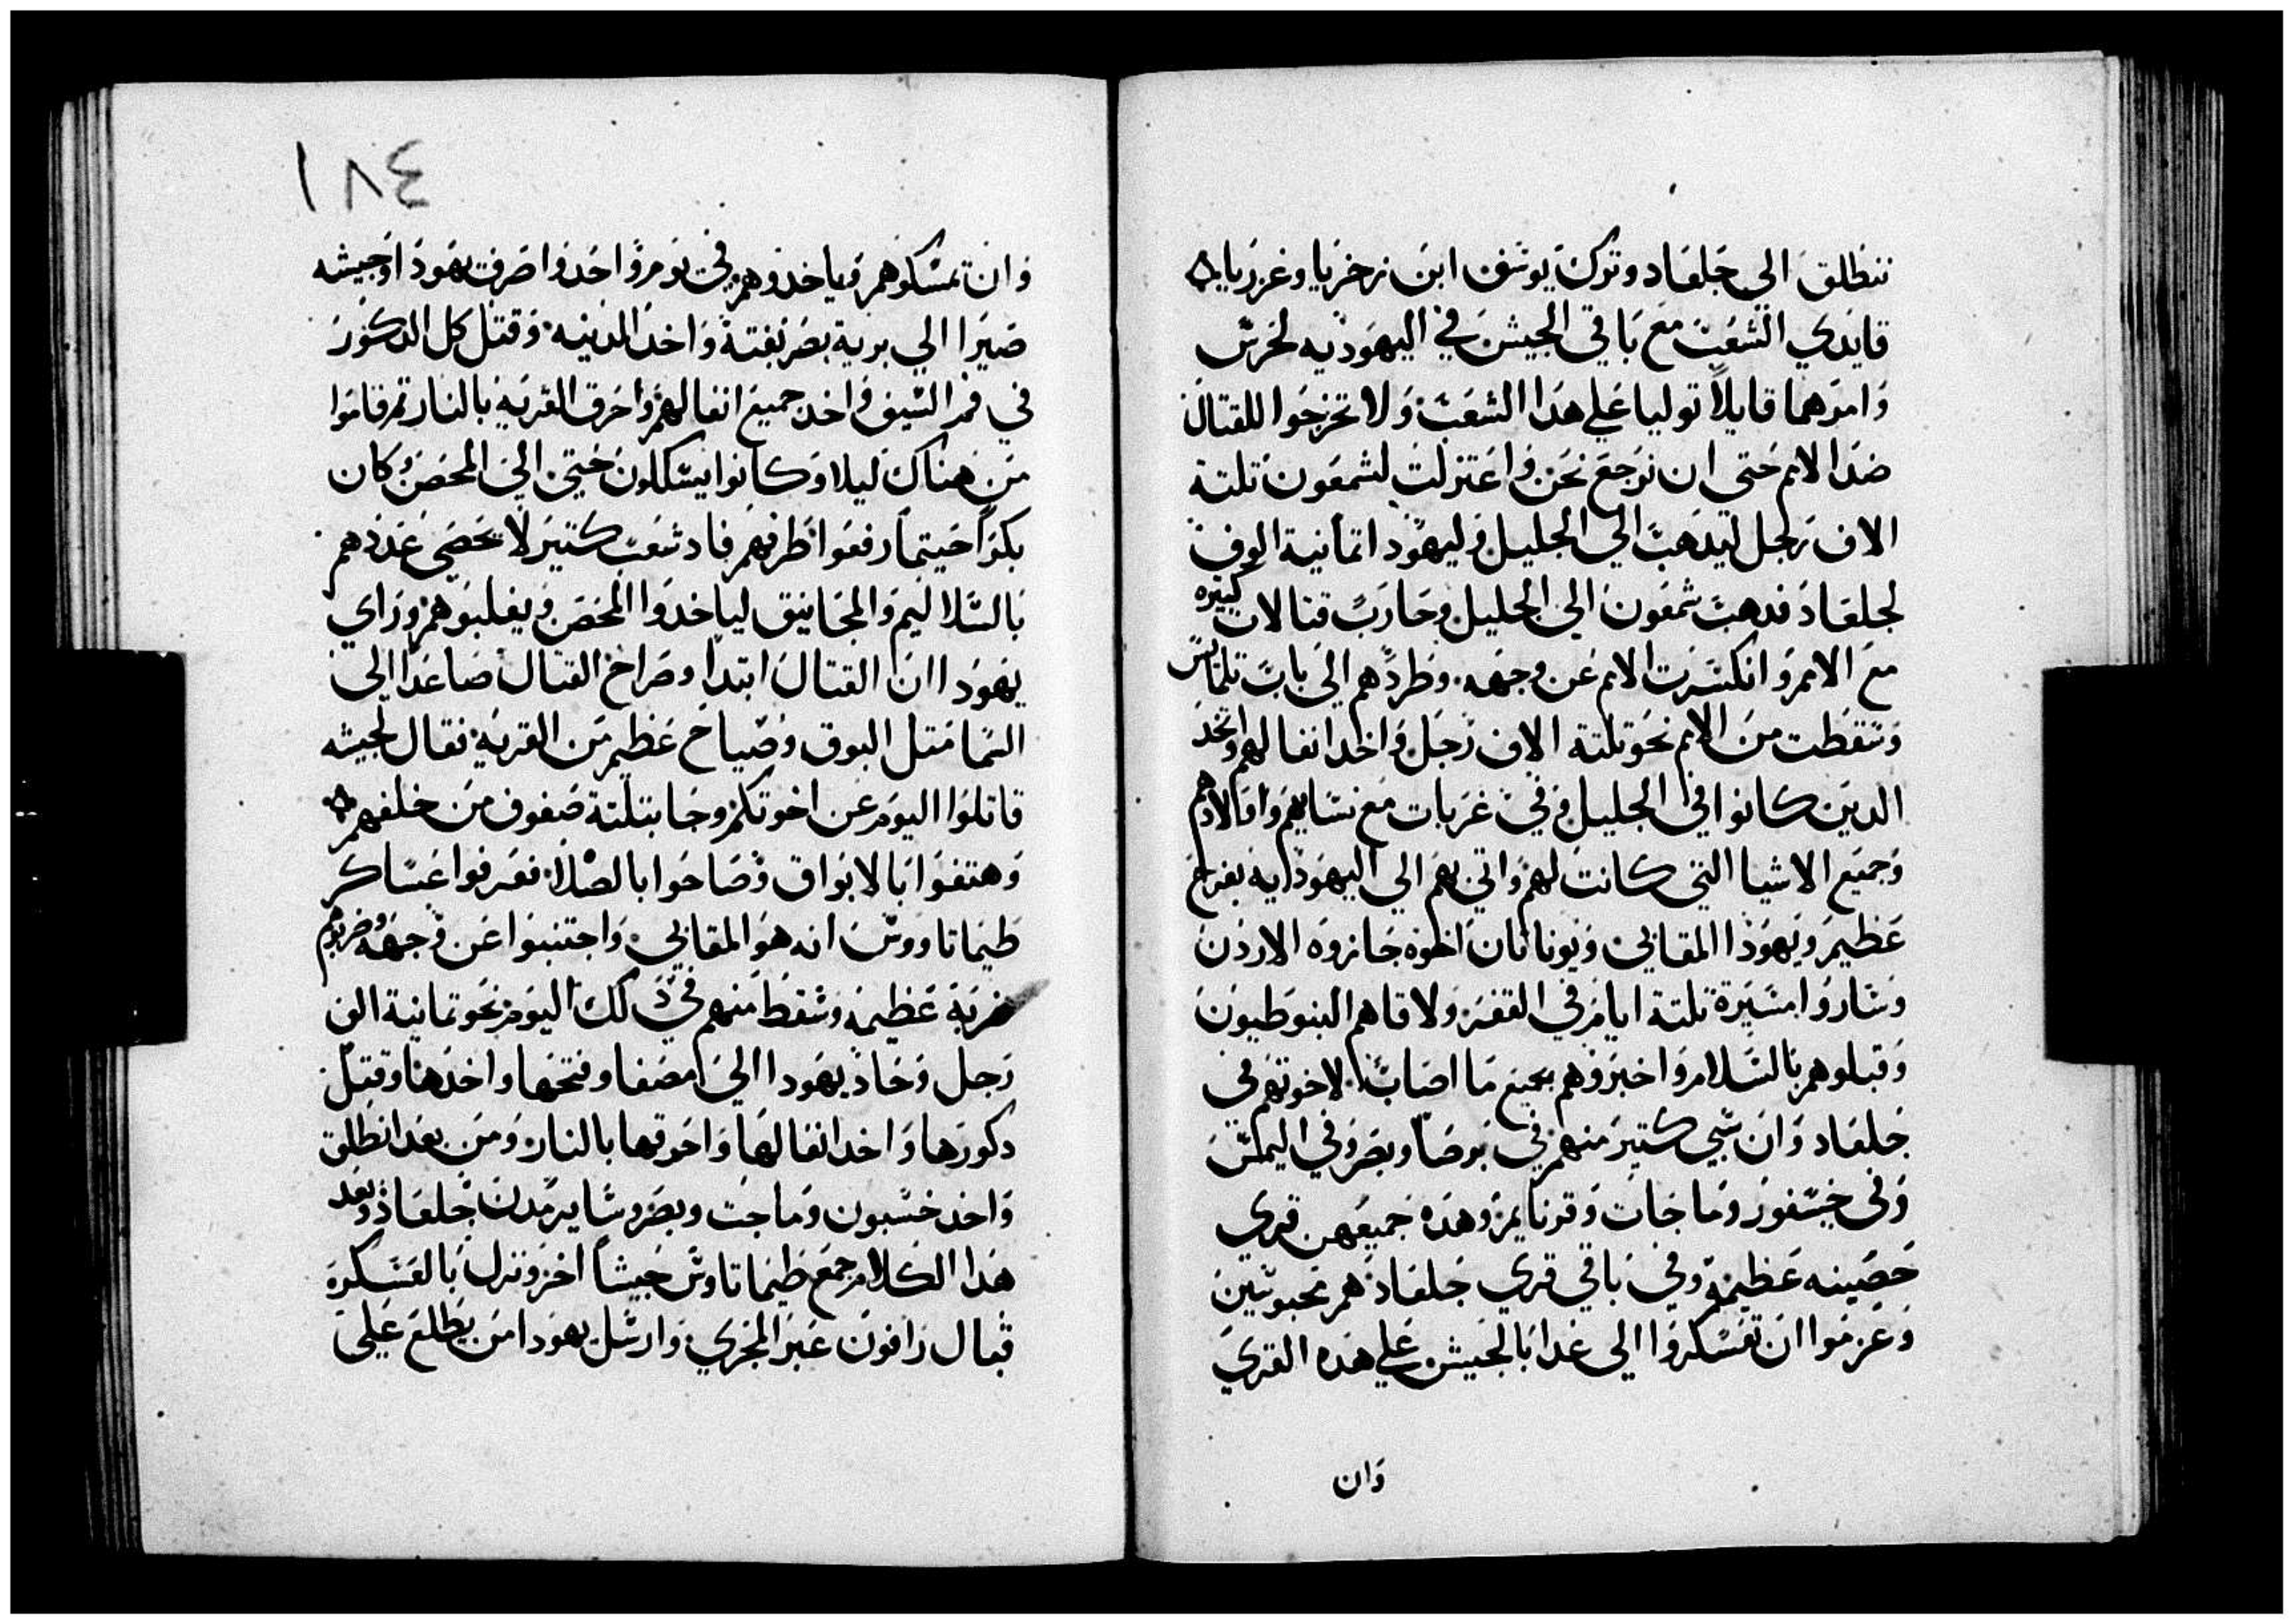 ننطلق الي جلعاد وترك يوسف ابن زخريا وعزريا
قايدي الشعب مع باقي الجيش في اليهوديه لحرس
وامرهما قايلا توليا علي هدا الشعب ولا تخرجوا للقتال
ضد الامم حتي ان نرجع نحن واعتزلت لشمعون تلتة
الاف رجل ليدهب الي الجليل وليهودا تمانية الوف
لجلعاد فدهب شمعون الي الجليل وحارب قتالات كتيره
مع الامم وانكسرت الامم عن وجهه وطردهم الي باب تلمايس
وسقطت من الامم نحو تلتة الاف رجل واخد انفالهم واتخد
الدين كانوا في الجليل وفي عربات مع نسايهم واولادهم
وجميع الاشيا التي كانت لهم واتي بهم الي اليهودايه بفرح
عظيم ويهودا المقابي ويوناتان اخوه جازوه الاردن
وساروا مسيرة تلتة ايام في القفر ولاقاهم النبوطيون
وقبلوهم بالسلام واخبروهم بجميع ما اصاب لاخوتهم في
جلعاد وان سبي كتير منهم في بوصا وبصر وفي اليمس
وفي خسفور وماجات وقرنايم وهده جميعهن قري
حصينه عظيمة وفي باقي قري جلعاد هم محبوسين
وعزموا ان تعسكروا الي غدا بالجيش علي هده القري
وان
١٨٤
وان تمسكوهم وياخدوهم في يوم واحد واصرفت يهودا وجيشه
صيرا الي برية بصر بغتة واخد المدينه وقتل كل الدكور
في فم السيف واخد جميع انفالهم واحرق القريه بالنار تم قاموا
من هناك ليلا وكانوا يسلكون حتي الي المحصن وكان
بكرا حيتما رفعوا طرفهم فاد شعب كتير لا يحصي عددهم
بالسلاليم والمجانيق لياخدوا المحصن ويغلبوهم وراي
يهودا ان القتال ابتدا وصراخ القتال صاعدا الي
السما متل البوق وصياح عظيم من القريه فقال لجيشه
قاتلوا اليوم عن اخوتكم وجا بتلتة صفوف من خلفهم
وهتفوا بالابواق وصاحوا بالصلا فعرفوا عساكر
طيماتاووس انه هو المقابي واجتنبوا عن وجهه وضربهم
ضربة عظيمه وسقط منهم في دلك اليوم نحو تمانية الف
رجل وحاد يهودا الي امصفا وفتحها واخدها وقتل
دكورها واخد انفالها واحرقها بالنار ومن بعد انطلق
واخد خسبون وماجت وبصر وساير مدن جلعاد وبعد
هدا الكلام جمع طيماتاوس جيشا اخر ونزل بالعسكرة
قبال رافون عبر المجري وارسل يهودا من يطلع علي